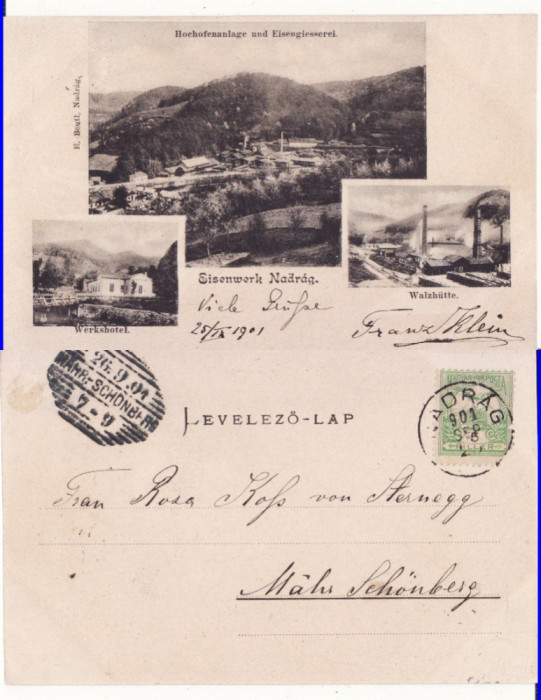 Hochofenanlage und Eisengiesserei.
Nadrág.
Eisenwerk Nadrág.
Werkshotel.
Walzhütte.
Viele Grüße
25/IX 1901
Franz Klein
26.9.01
MÄHR.-SCHÖNBERG
7-9
LEVELEZŐ-LAP
MAGYAR KIR. POSTA
NADRÁG
901
SEP
Frau Rosa Koß von Sternegg
Mähr Schönberg